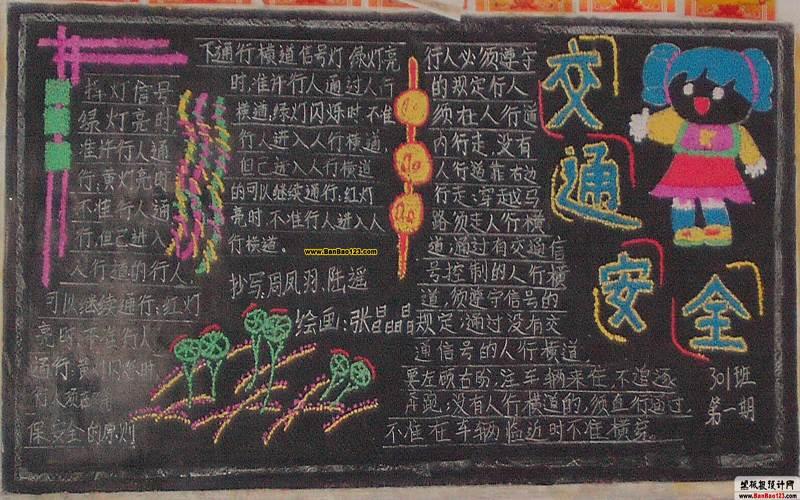 指灯信号
绿灯亮时
准许行人通
行;黄灯亮时
不准行人通
行,但已进入
人行道的行人,
可以继续通行;红灯
亮时,不准行人
通行;黄灯闪烁时,
行人须
保安全的原则
下通行横道信号灯绿灯亮
时,准许行人通过人行
横道,绿灯闪烁时不准
行人进入人行横道,
但已进入人行横道
的可以继续通行;红灯
亮时,不准行人进入人
行横道。
www.BanBao123.com
抄写:周凤羽、陆遥
绘画:张晶晶
行人必须遵守
的规定行人
须在人行道
内行走,没有
人行道靠右边
行走;穿越马
路须走人行横
道;通过有交通信
号控制的人行横
道,须遵守信号的
规定;通过没有交
通信号的人行横道,
要左顾右盼,注车辆来往,不追逐、
奔跑;没有人行横道的,须直行通过,
不准在车辆临近时不准横穿。
交
通
安
全
301班
第一期
黑板报设计网
www.BanBao123.com